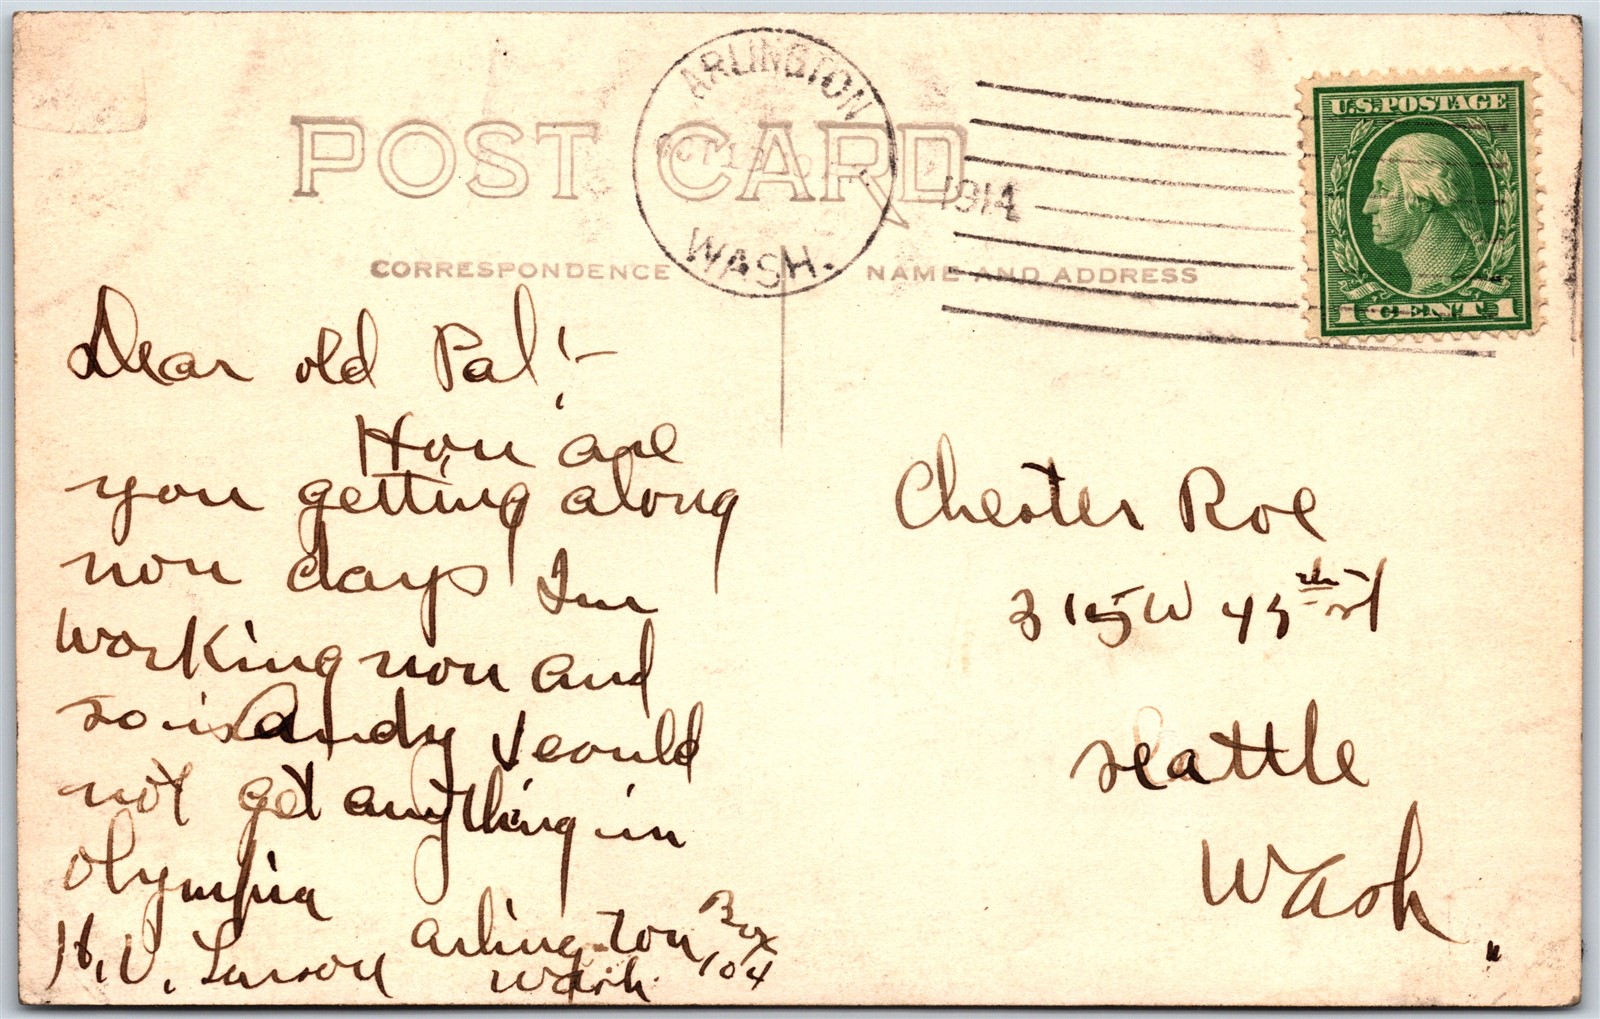 POST CARD
ARLINGTON
OCT 12
1914
WASH.
U.S. POSTAGE
1 CENT 1
CORRESPONDENCE
NAME AND ADDRESS
Dear old Pal!-
How are
you getting along
now days Im
working now and
so is Andy I could
not get anything in
Olympia
H.V. Larson Arlington Box
Wash. 104
Chester Roe
315 W 43 th st
Seattle
Wash.